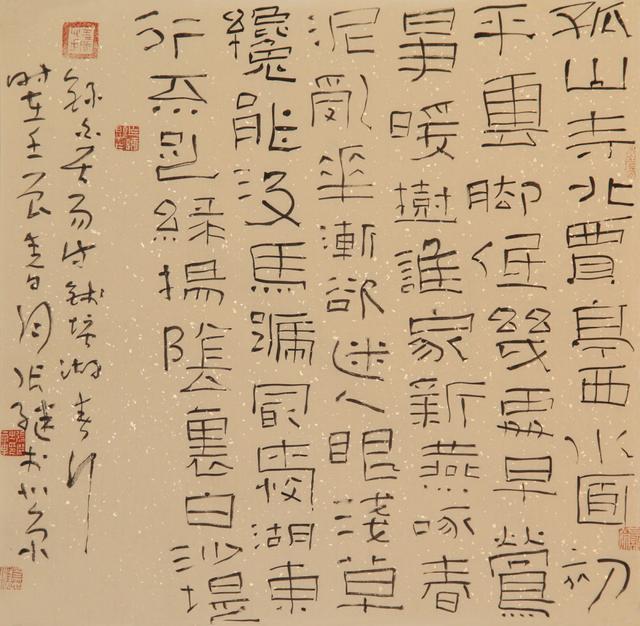 孤山寺北賈亭西水面初
平雲脚低幾處早鶯
爭暖樹誰家新燕啄春
泥亂花漸欲迷人眼淺草
纔能没馬蹄最愛湖東
行不足綠楊陰裏白沙堤
錄白居易詩錢塘湖春行
時在壬辰春日張繼於北京